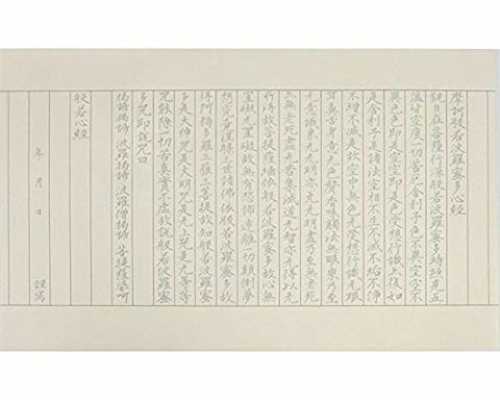 摩訶般若波羅蜜多心經
觀自在菩薩行深般若波羅蜜多時照見五
蘊皆空度一切苦厄舍利子色不異空空不
異色色即是空空即是色受想行識亦復如
是舍利子是諸法空相不生不滅不垢不淨
不增不減是故空中无色无受想行識无眼
耳鼻舌身意无色聲香味觸法无眼界乃至
无意識界无无明亦无无明盡乃至无老死
亦无老死盡无苦集滅道无智亦无得以无
所得故菩提薩埵依般若波羅蜜多故心无
罣礙无罣礙故无有恐怖遠離一切顛倒夢
想究竟涅槃三世諸佛依般若波羅蜜多故
得阿耨多羅三藐三菩提故知般若波羅蜜
多是大神咒是大明咒是无上咒是无等等
咒能除一切苦真實不虛故說般若波羅蜜
多咒即說咒曰
揭諦揭諦 波羅揭諦 波羅僧揭諦 菩提薩婆訶
般若心經
年 月 日 謹寫